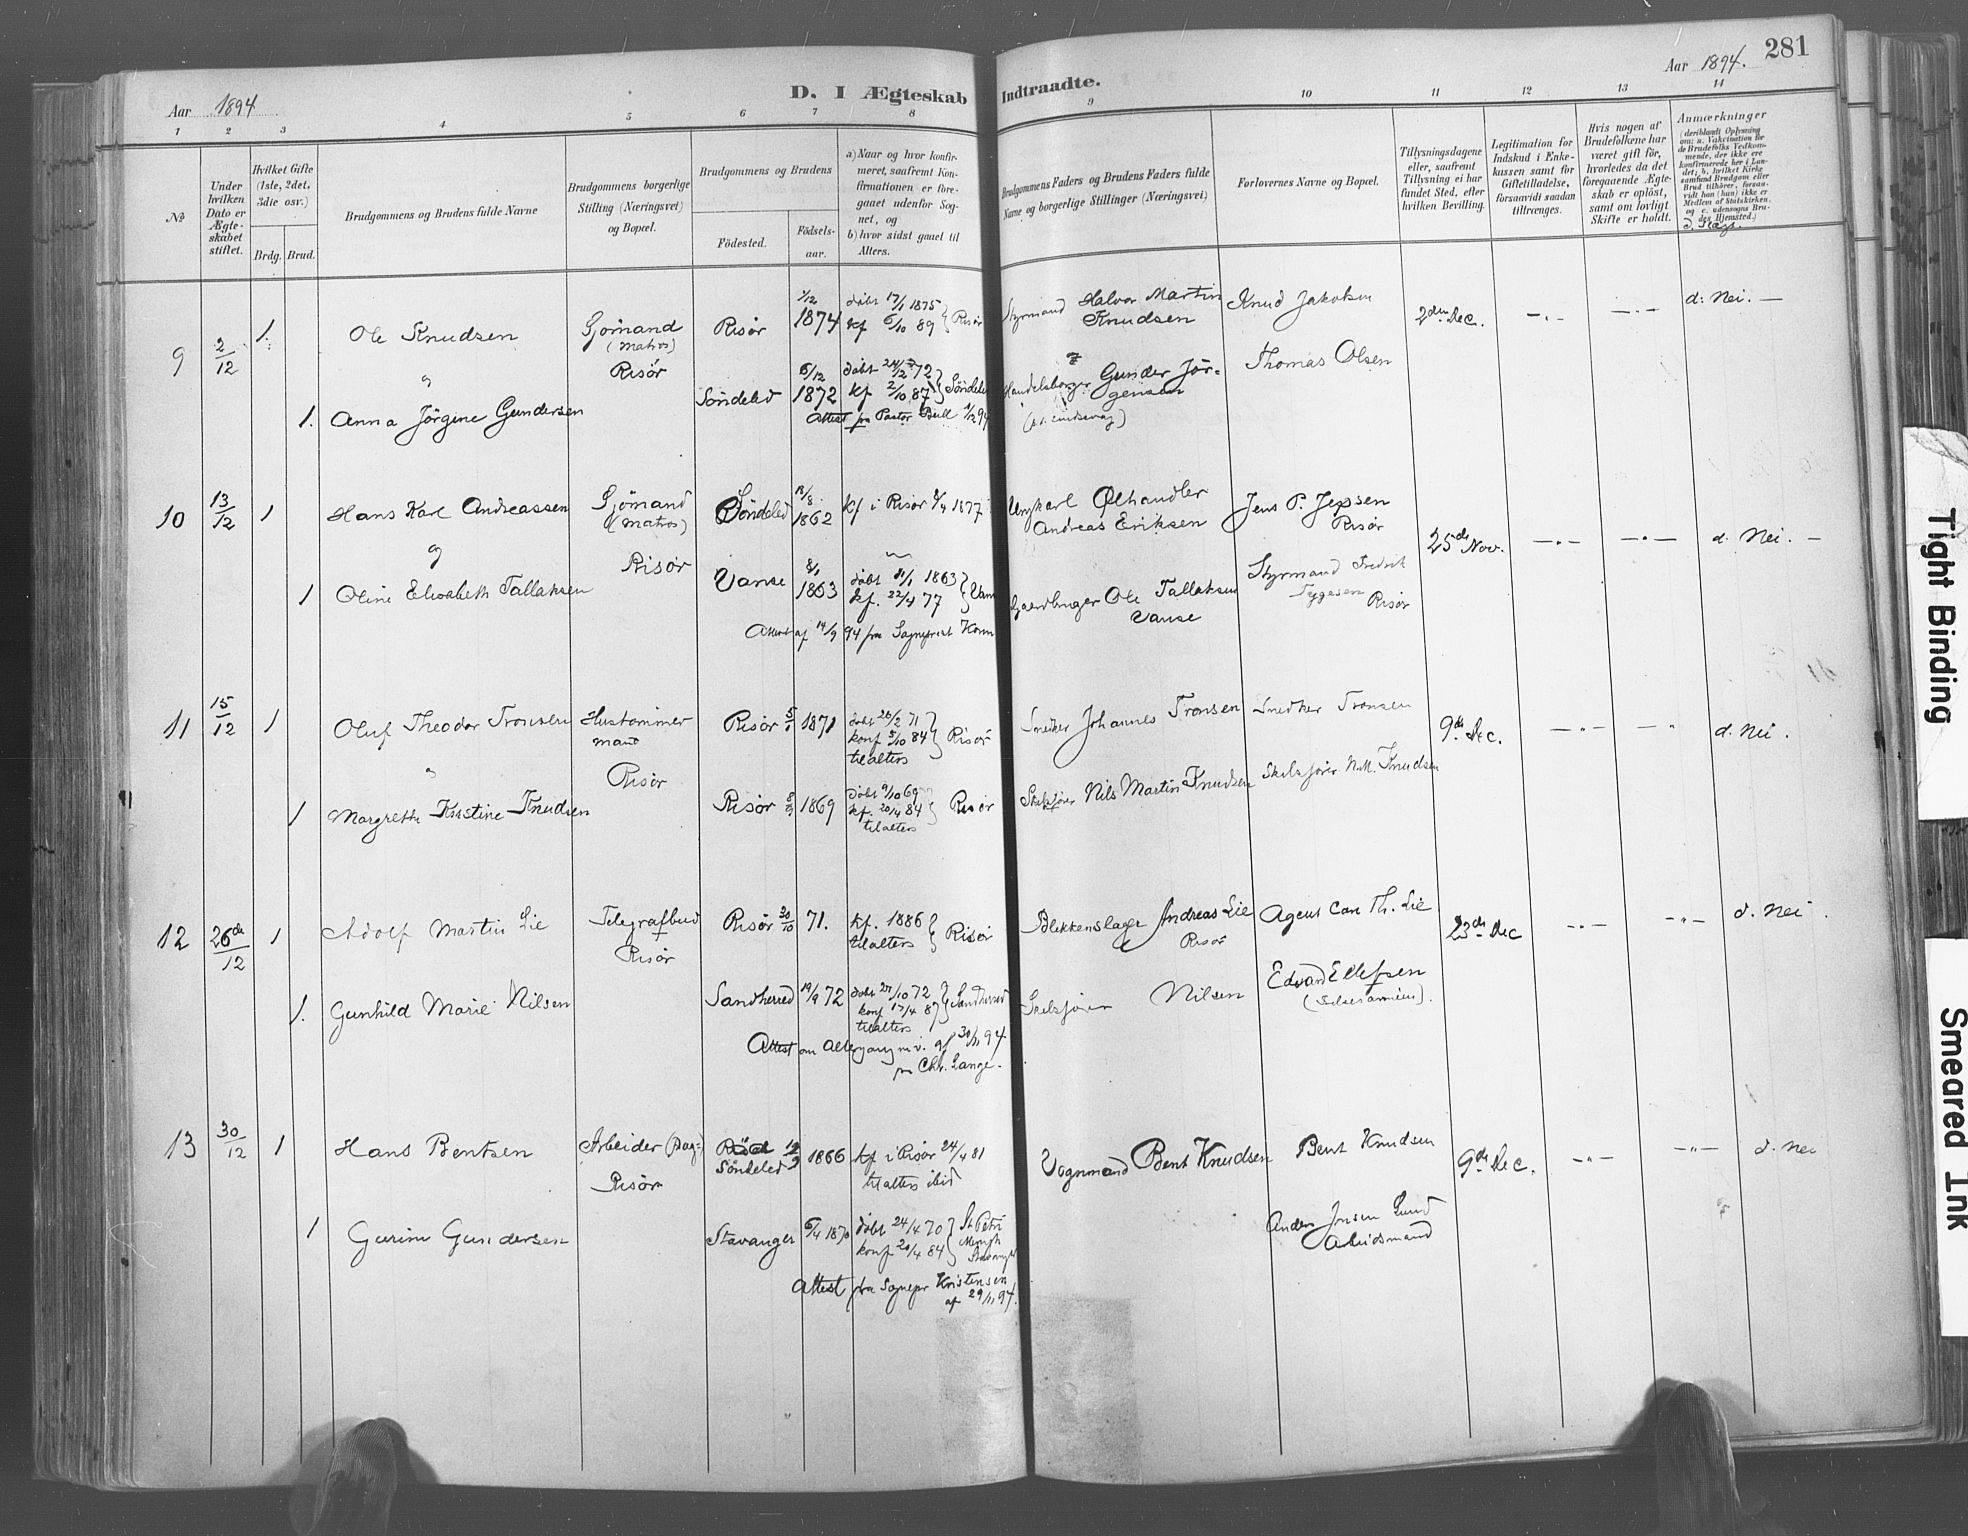 Aar 1894
D. I Ægteskab Indtraadte.
Aar 1894. 281
1 2 3 4 5 6 7 8 9 10 11 12 13 14
No
Under hvilken Dato er Ægteskabet stiftet.
Hvilket Gifte (1ste, 2det, 3die osv.)
Brdg. Brud.
Brudgommens og Brudens fulde Navne
Brudgommens borgerlige Stilling (Næringsvei) og Bopæl.
Brudgommens og Brudens
Födested.
Födselsaar.
a) Naar og hvor konfirmeret, saafremt Konfirmationen er foregaaet udenfor Sognet, og
b) hvor sidst gaaet til Alters.
Brudgommens Faders og Brudens Faders fulde Navne og borgerlige Stillinger (Næringsvei)
Forlovernes Navne og Bopæl.
Tillysningsdagene eller, saafremt Tillysning ei har fundet Sted, efter hvilken Bevilling.
Legitimation for Indskud i Enkekassen samt for Giftetilladelse, forsaavidt saadan tiltrænges.
Hvis nogen af Brudefolkene har været gift för, hvorledes da det foregaaende Ægteskab er oplöst, samt om lovligt Skifte er holdt.
Anmærkninger
9 2/12 1. Ole Knudsen
Sjømand (Matros) Risør
Risør 1/12 1874
døbt 17/1 1875
kf 6/10 89 } Risør
Styrmand Halvor Martin Knudsen
Knud Jakobsen
2den Dec.
d: Nei. —
1. Anna Jörgine Gundersen
Söndeled 5/12 1872
kf 2/10 87 } Söndeled
Attest fra Pastor Bull
Handelsborger Gunder Jörgensen
Thomas Olsen
10 13/12 1 Hans Karl Andreassen
og
Sjömand (Matros)
Risør
Söndeled 1862
kf i Risør 8/4 1877
Andreas Eriksen
Jens P. Jepsen
Risør
25de Nov.
d. Nei. —
1 Oline Elisabeth Tallaksen
Vanse 8/1 1863
døbt 31/1 1863
kf. 22/4 77
Attest af 14/9 94 fra Sognepræst
Ole Tallaksen
Vanse
Styrmand Fredrik Tygesen Risør
11 15/12 1 Oluf Theodor Tronsen
Hustømmermand
Risør
Risør 1871
døbt 26/2 71
konf 5/10 84
til alters } Risør
Snedker Johannes Tronsen
Snedker Tronsen
9de Dec.
d. Nei.
1 Margrethe Kristine Knudsen
Risør 1869
døbt 9/10 69
kf. 20/4 84
til alters } Risør
Skibsfører Nils Martin Knudsen
Skibsfører N.M. Knudsen
12 26de/12 1 Adolf Martin Lie
Telegrafbud
Risør
Risør 30/10 71.
kf. 1886
til alters } Risør
Blikkenslager Andreas Lie
Risør
Agent Carl Th. Lie
23de Dec
d. Nei.
1. Gunhild Marie Nilsen
Sandherred 19/9 72
døbt 27/10 72
konf 17/4 87
til alters } Sandherred
Attest om Altergang af 30/11 94
fra Chr. Lange.
Skibsfører Nilsen
Edvard Ellefsen
13 30/12 1 Hans Bentsen
Arbeider (Dag-)
Risør
Söndeled 1866
kf i Risør 24/4 81
til alters ibid
Vognmand Bent Knudsen
Bent Knudsen
9de Dec.
d. Nei
1 Gurine Gundersen
Stavanger 6/4 1870
døbt 24/4 70
konf 20/4 84 } St Petri
Attest fra Sognepr Kristensen
af 29/11 94.
Anders Jonsen Lund
Tight Binding
Smeared Ink